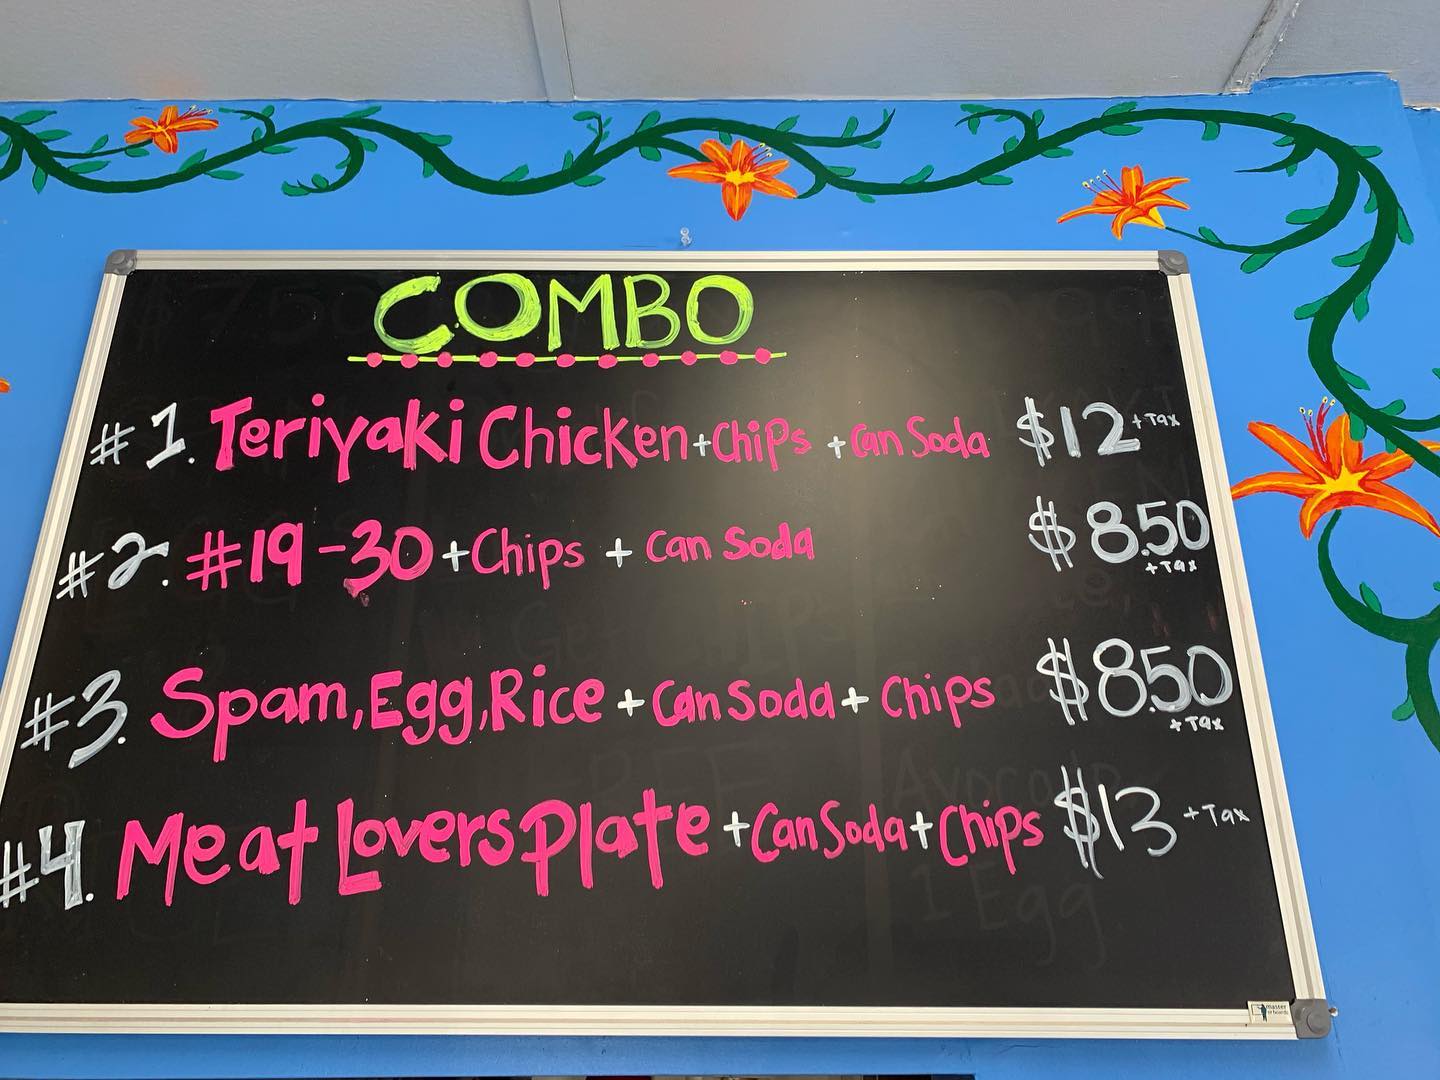 COMBO
#1. Teriyaki Chicken + Chips + Can Soda $12 + Tax
#2. #19-30 + Chips + Can Soda $8.50 + Tax
#3. Spam, Egg, Rice + Can Soda + Chips $8.50 + Tax
#4. Meat Lovers Plate + Can Soda + Chips $13 + Tax
1 Egg
master
of boards